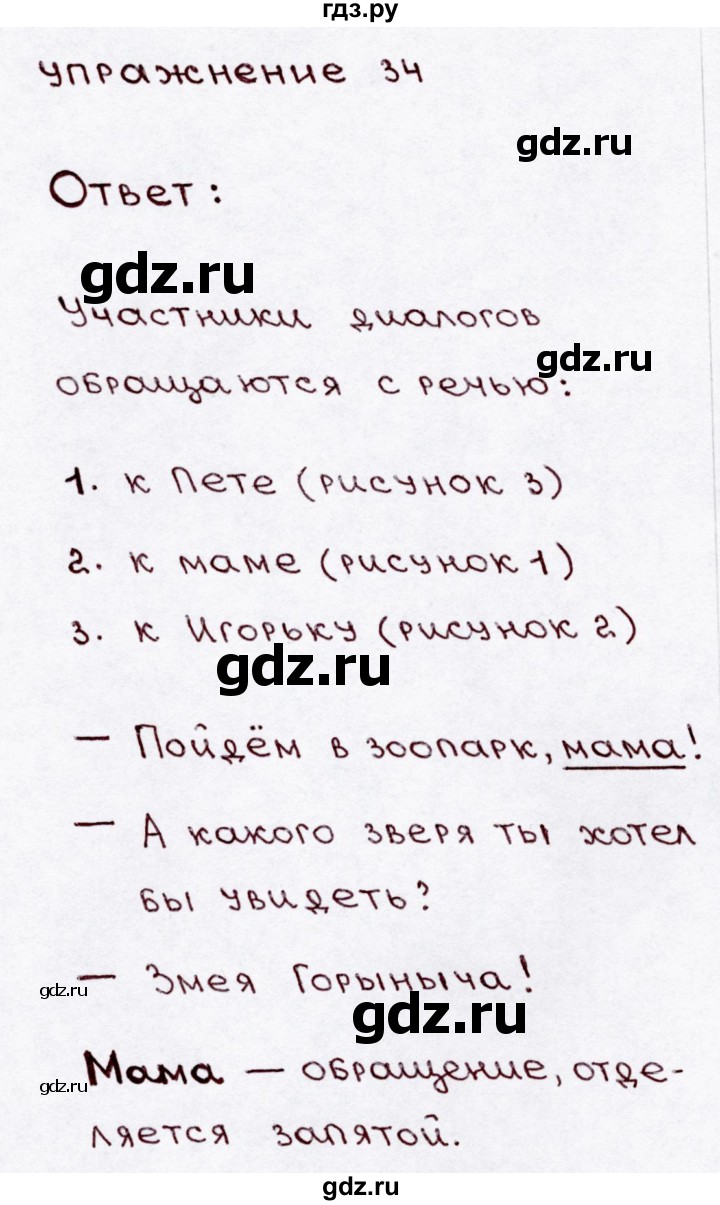 гдз.ру
упражнение 34
gdz.ru
Ответ:
gdz.ru
Участники диалогов
gdz.ru
обращаются с речью:
1. к Пете (рисунок 3)
2. к маме (рисунок 1)
3. к Игорьку (рисунок 2)
gdz.ru
— Пойдём в зоопарк, мама!
— А какого зверя ты хотел
бы увидеть?
— Змея Горыныча!
gdz.ru
gdz.ru
Мама — обращение, отде-
gdz.ru
ляется запятой.
gdz.ru